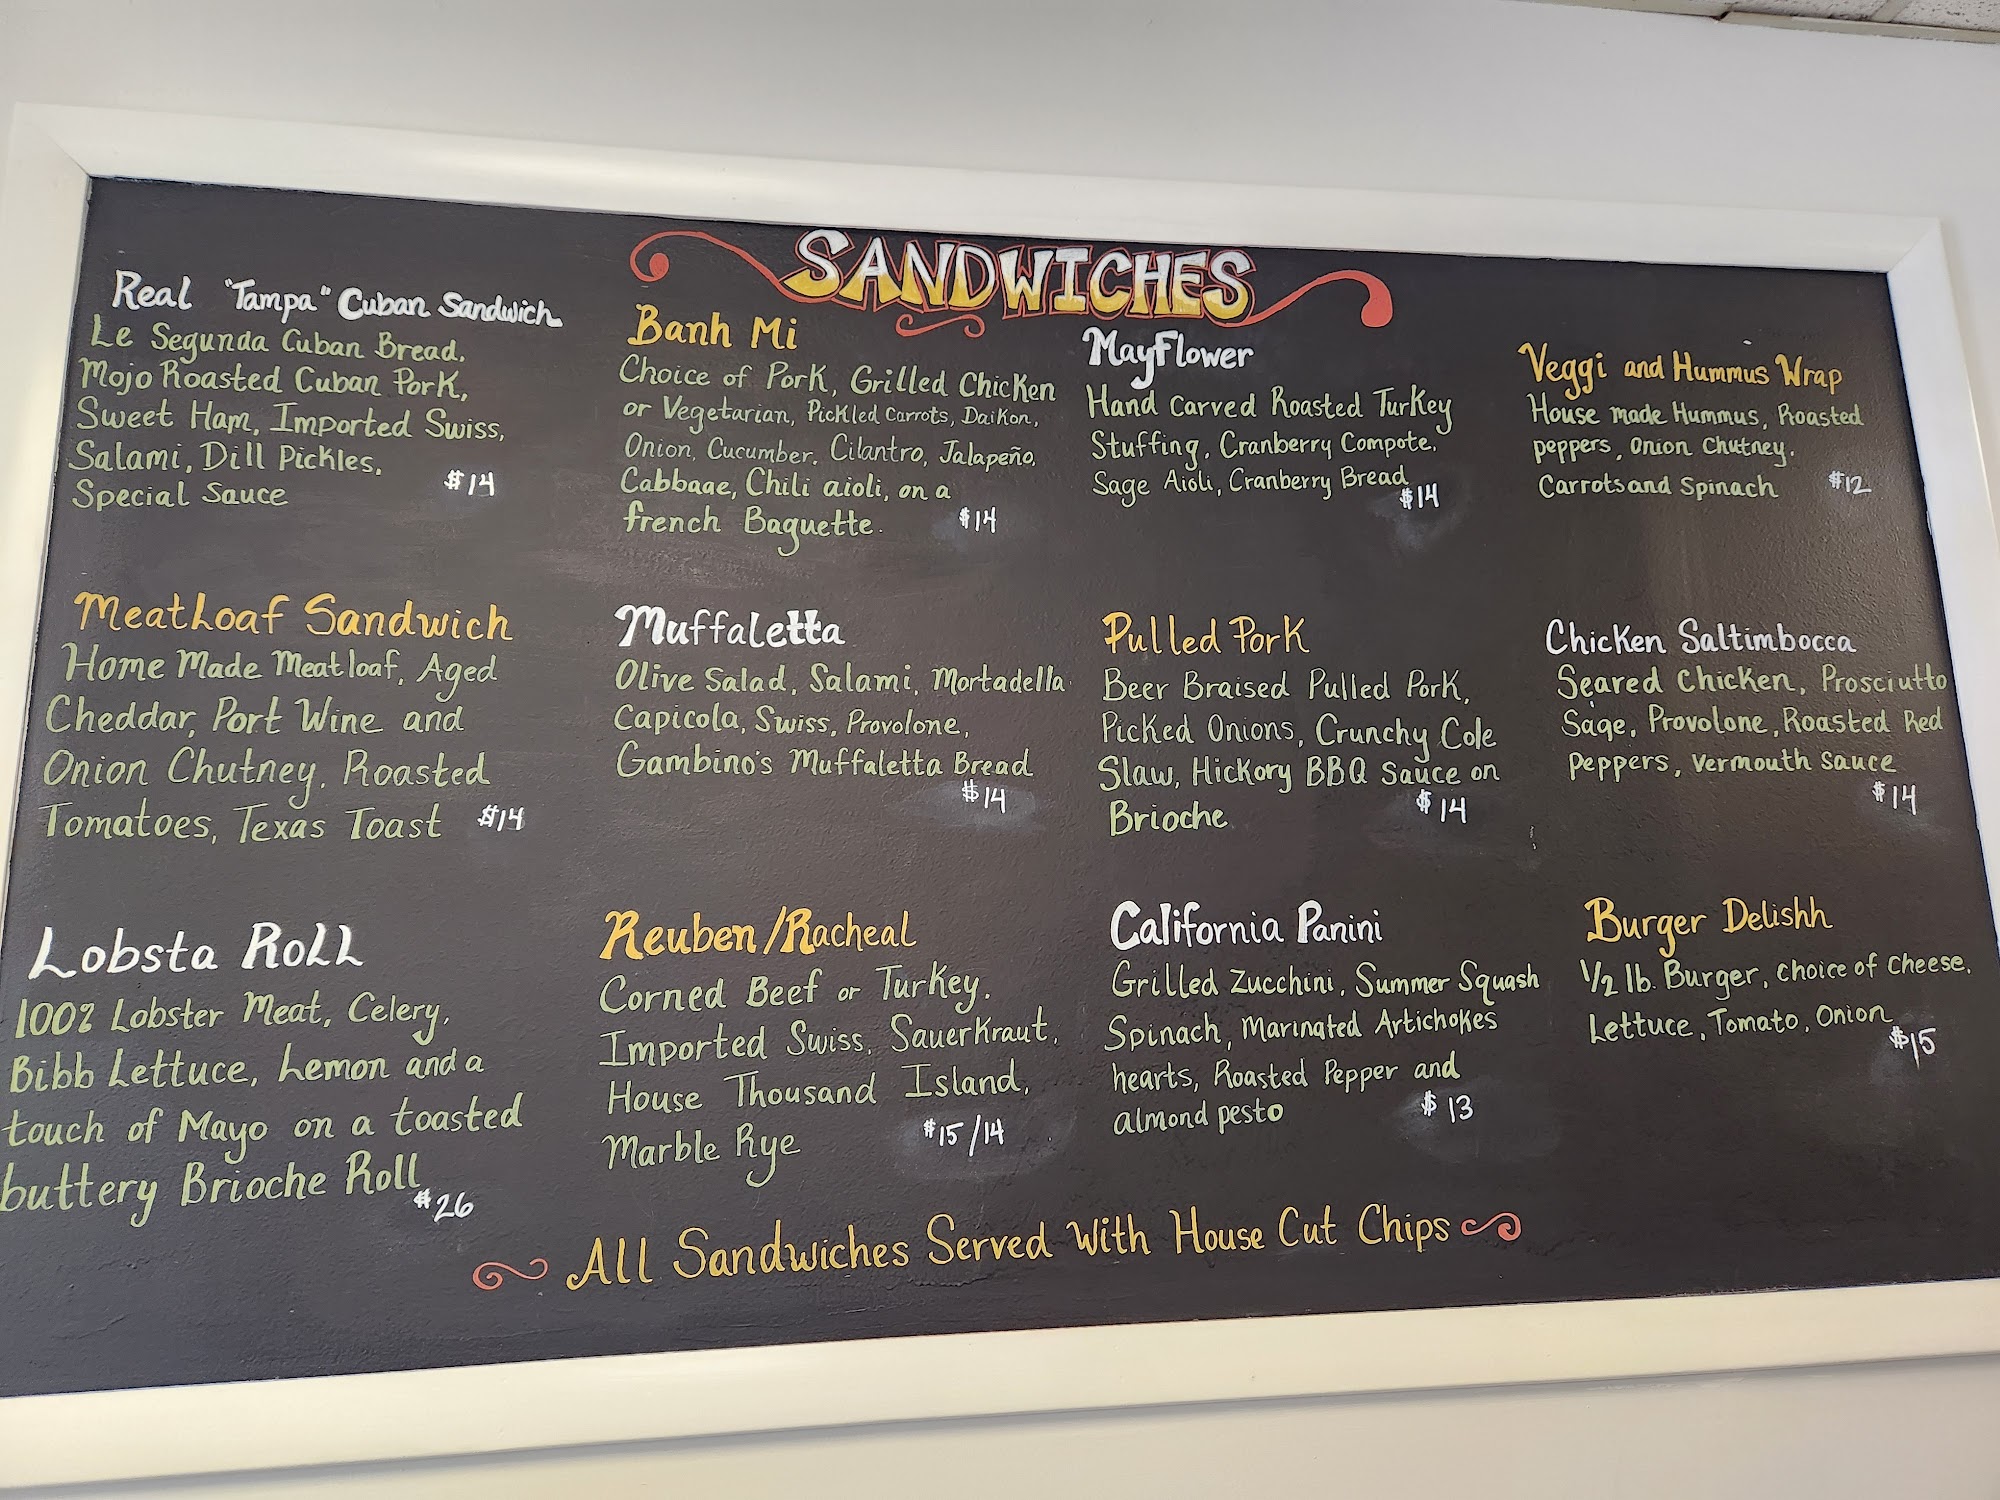 SANDWICHES
Real "Tampa" Cuban Sandwich
Le Segunda Cuban Bread,
Mojo Roasted Cuban Pork,
Sweet Ham, Imported Swiss,
Salami, Dill Pickles,
Special Sauce $14
Banh Mi
Choice of Pork, Grilled Chicken
or Vegetarian, Pickled Carrots, Daikon,
Onion, Cucumber, Cilantro, Jalapeño,
Cabbage, Chili aioli, on a
french Baguette. $14
Mayflower
Hand Carved Roasted Turkey
Stuffing, Cranberry Compote,
Sage Aioli, Cranberry Bread
$14
Veggi and Hummus Wrap
House made Hummus, Roasted
peppers, Onion Chutney,
Carrots and Spinach $12
Meatloaf Sandwich
Home Made Meatloaf, Aged
Cheddar, Port Wine and
Onion Chutney, Roasted
Tomatoes, Texas Toast $14
Muffaletta
Olive Salad, Salami, Mortadella
Capicola, Swiss, Provolone,
Gambino's Muffaletta Bread
$14
Pulled Pork
Beer Braised Pulled Pork,
Picked Onions, Crunchy Cole
Slaw, Hickory BBQ Sauce on
Brioche $14
Chicken Saltimbocca
Seared Chicken, Prosciutto
Sage, Provolone, Roasted Red
Peppers, Vermouth Sauce
$14
Lobsta Roll
100% Lobster Meat, Celery,
Bibb Lettuce, Lemon and a
touch of Mayo on a toasted
buttery Brioche Roll
$26
Reuben/Racheal
Corned Beef or Turkey,
Imported Swiss, Sauerkraut,
House Thousand Island,
Marble Rye $15/14
California Panini
Grilled Zucchini, Summer Squash
Spinach, Marinated Artichokes
hearts, Roasted Pepper and
almond pesto $13
Burger Delishh
1/2 lb. Burger, choice of cheese,
Lettuce, Tomato, Onion
$15
All Sandwiches Served With House Cut Chips